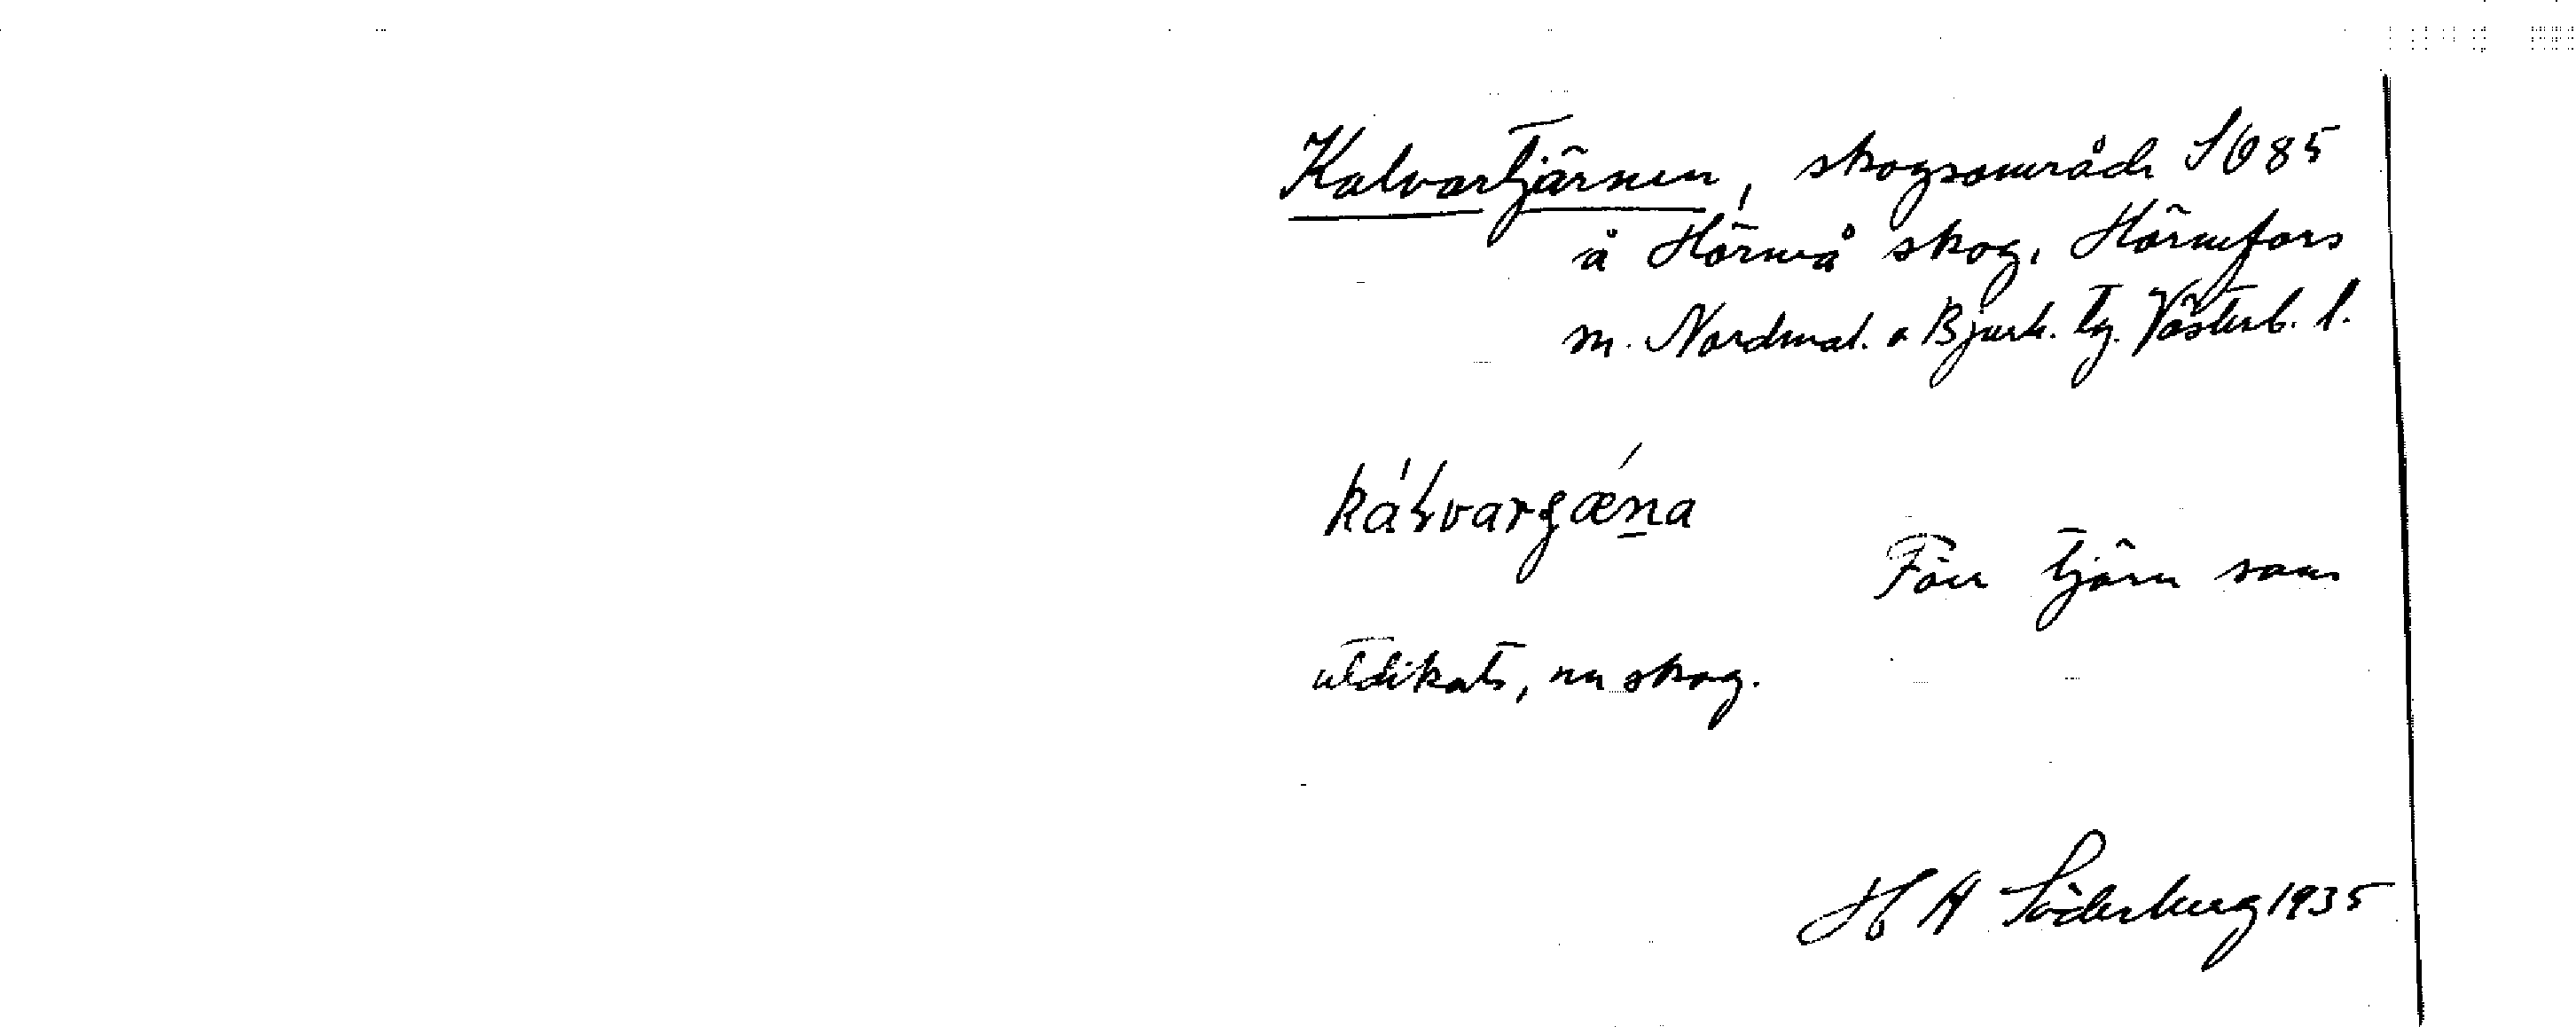 Kalvartjärnen, skogsområde SO 85
å Hörneå skog, Hörnefors
sn. Nordmal. o Bjurh. tg. Västerb. l.
Förr tjärn som
utdikats, nu skog.
H A Söderberg 1935